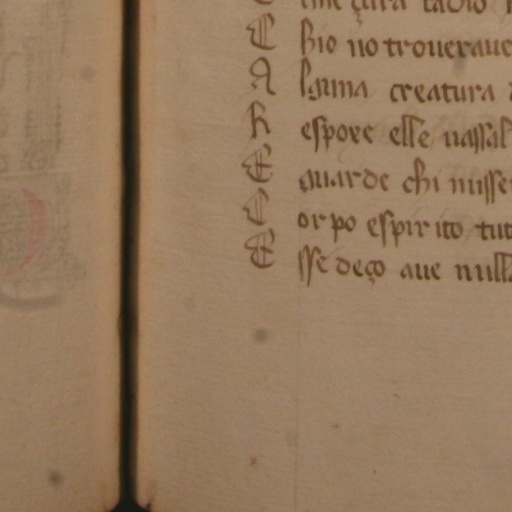 C hio no troueraue
A lguna creatura
R espoxe elle uassal
E guarde chi nusse
C orpo espirito tut
E sse deço aue null